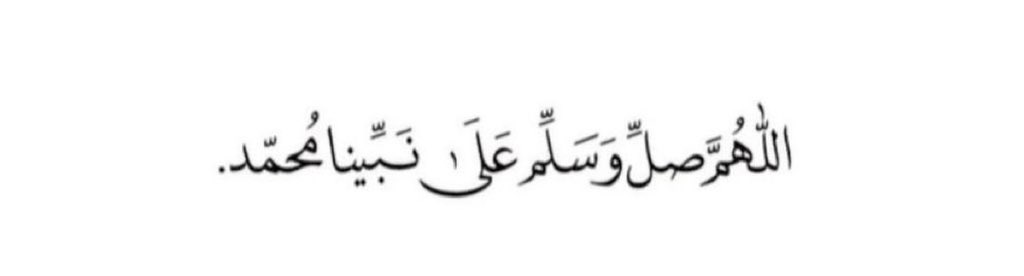 اللهُمَّ صلِّ وَسَلِّم عَلَى نَبِّينا مُحمّد.